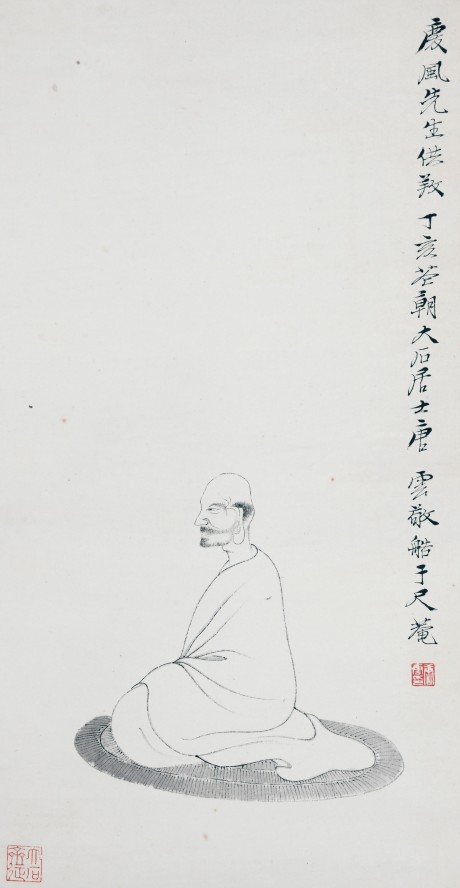 風先生供養 丁亥花朝大石居士唐雲敬艁于尺菴